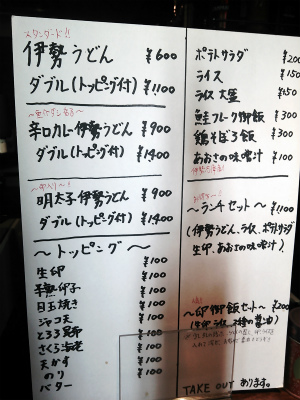 スタンダード!!
伊勢うどん ¥600
ダブル(トッピング付) ¥1100
辛口カレー伊勢うどん ¥900
ダブル(トッピング付) ¥1400
明太子伊勢うどん ¥900
ダブル(トッピング付) ¥1400
〜トッピング〜
生卵 ¥100
半熟卵子 ¥100
目玉焼き ¥100
ジャコ天 ¥100
とろろ昆布 ¥100
さくら海老 ¥100
天かす ¥100
のり ¥100
バター ¥100
ポテトサラダ ¥200
ライス ¥150
ライス大盛 ¥250
鮭フレーク御飯 ¥300
鶏そぼろ飯 ¥300
あおさの味噌汁 ¥100
〜ランチセット〜 ¥1100
(伊勢うどん、ライス、ポテトサラダ
生卵、あおさの味噌汁)
〜卵御飯セット〜 ¥200
TAKE OUT あります。